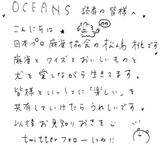 OCEANS 読者の皆様へ
こんにちは
日本プロ麻雀協会の松嶋桃です
麻雀とクイズとおいしいものと
犬を愛しながら生きてます。
皆様といっしょに「楽しい」を
共有していけたらうれしいです。
以後お見知りおきを
twitterフォローしてね!